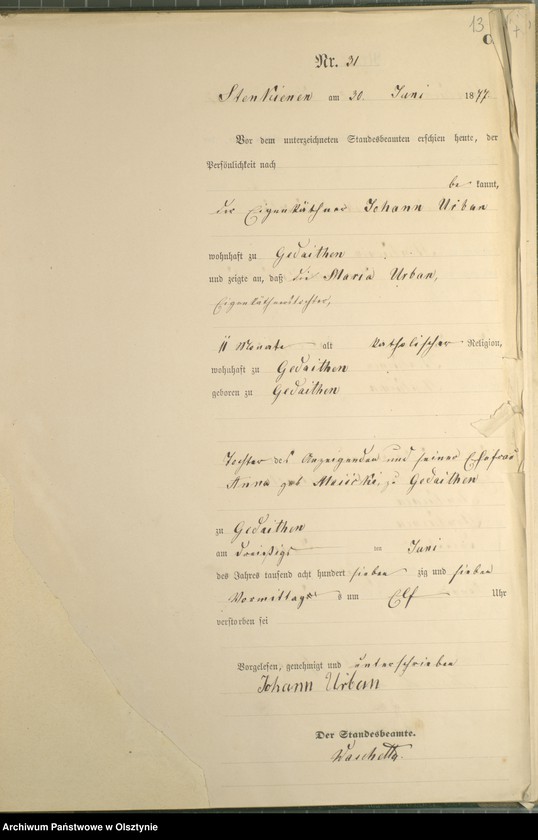 13
Nr. 31
Stenkienen am 30. Juni 1877
Vor dem unterzeichneten Standesbeamten erschien heute, der
Persönlichkeit nach
be kannt,
der Eigenkäthner Johann Urban
wohnhaft zu Gedaithen
und zeigte an, daß die Maria Urban,
Eigenkäthnertochter,
11 Monate alt katholischer Religion,
wohnhaft zu Gedaithen
geboren zu Gedaithen
Tochter des Anzeigenden und seiner Ehefrau
Anna geb zu Gedaithen
zu Gedaithen
am dreißigs ten Juni
des Jahres tausend acht hundert sieben zig und sieben
Vormittag s um Elf Uhr
verstorben sei
Vorgelesen, genehmigt und unterschrieben
Johann Urban
Der Standesbeamte.
Archiwum Państwowe w Olsztynie